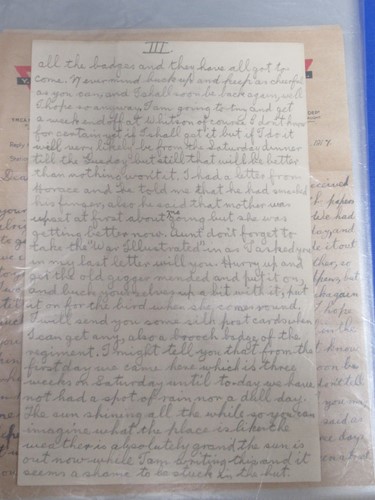 III
all the badges and they have all got to
come. Nevermind buck up and keep as cheerful
as you can and I shall soon be back again, well
I hope so anyway. I am going to try and get
a week end off at Whitson of course I don't know
for certain yet if I shall get it but if I do it
will very likely be from the Saturday dinner
till the Tuesday but still that will be better
than nothing wont it. I had a letter from
Horace and he told me that he had smashed
his finger, also he said that mother was
upset at first about me going but she was
getting better now. Aunt dont forget to
take the "War Illustrated" in as I asked you
in my last letter will you. Hurry up and
get the old gigger mended and put it on,
and buck yourselves up a bit with it, put
it on for the bird when she comes round.
I will send you some silk post cards when
I can get any, also a brooch badge of the
regiment. I might tell you that from the
first day we came here which is three
weeks on Saturday until to day we have
not had a spot of rain nor a dull day.
The sun shining all the while so you can
imagine what the place is like the
weather is absolutely grand the sun is
out now while I am writing this and it
seems a shame to be stuck in the hut.